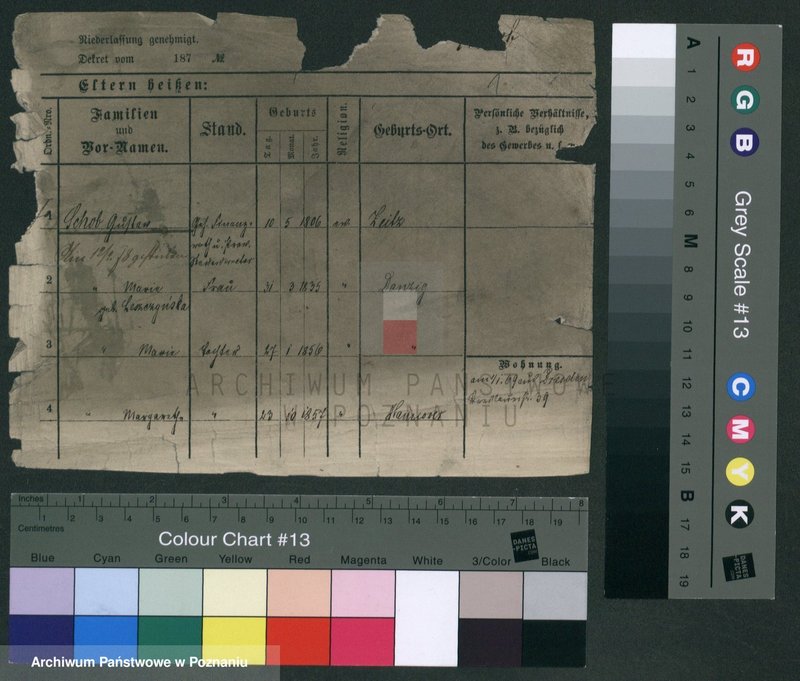 Niederlassung genehmigt.
Dekret vom 187 №
Eltern heißen:
Ordn.-Nro.
Familien und Vor-Namen.
Stand.
Geburts
Tag. Monat. Jahr.
Religion.
Geburts-Ort.
Persönliche Verhältnisse,
z. B. bezüglich
des Gewerbes u.
1 Schob Gustav Geh. Finanz- 10 5 1806 ev. Zeitz
rath u. Prov.
2 " Marie Frau 31 3 1835 " Danzig
geb.
3 " Marie Tochter 27 1 1856 " "
Wohnung.
4 " Margareth. " 23 10 1857 " Hannover
39
ARCHIWUM PAŃSTWOWE
W POZNANIU
Inches 1 2 3 4 5 6 7 8
Centimetres 1 2 3 4 5 6 7 8 9 10 11 12 13 14 15 16 17 18 19
Colour Chart #13
DANES
-PICTA
.COM
Blue Cyan Green Yellow Red Magenta White 3/Color Black
Archiwum Państwowe w Poznaniu
A 1 2 3 4 5 6 M 8 9 10 11 12 13 14 15 B 17 18 19
R G B
Grey Scale #13
C M Y K
DANES
-PICTA
.COM